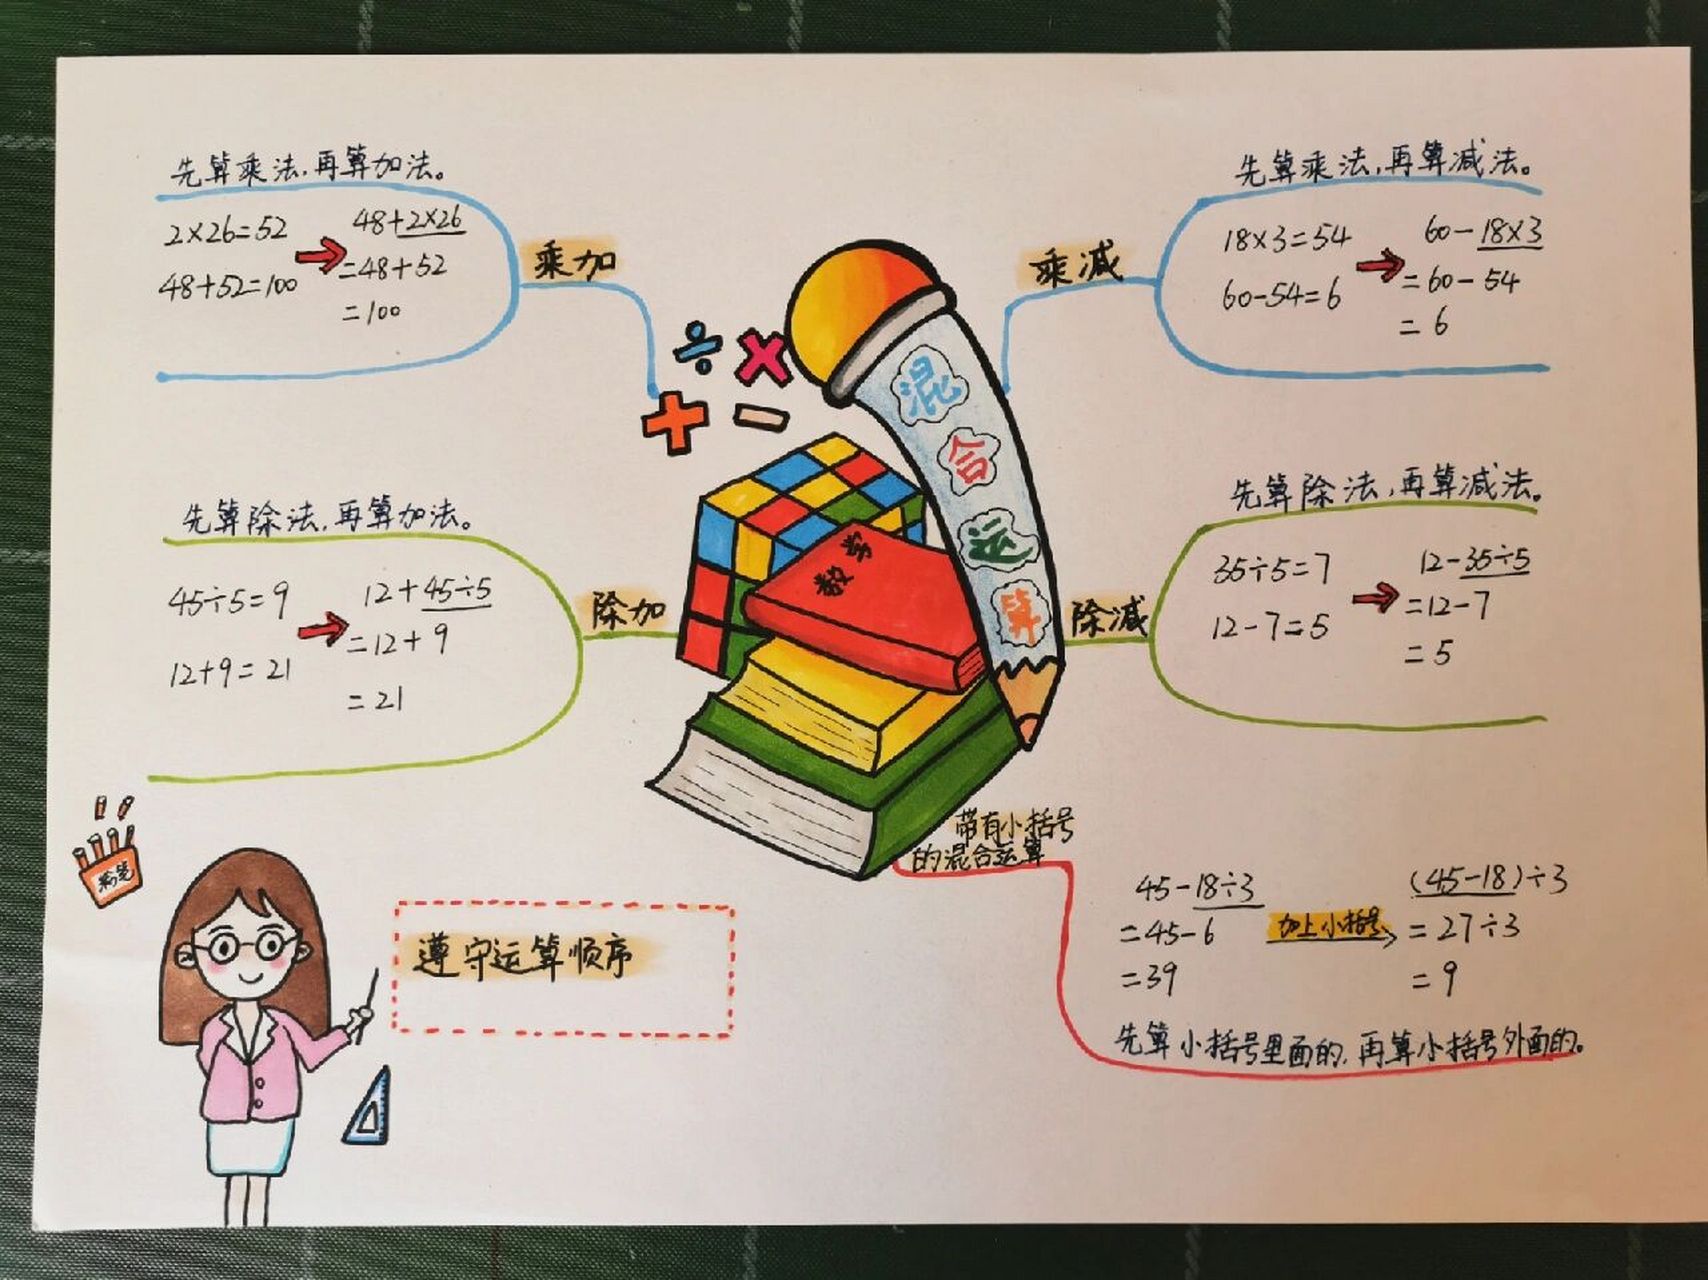 先算乘法,再算加法。
2×26=52
48+52=100
48+2×26
=48+52
=100
乘加
先算乘法,再算减法。
18×3=54
60-54=6
60-18×3
=60-54
=6
乘减
÷ ×
+ -
混
合
运
算
数学
先算除法,再算加法。
45÷5=9
12+9=21
12+45÷5
=12+9
=21
除加
先算除法,再算减法。
35÷5=7
12-7=5
12-35÷5
=12-7
=5
除减
带有小括号
的混合运算
45-18÷3
=45-6
=39
加上小括号
(45-18)÷3
=27÷3
=9
先算小括号里面的,再算小括号外面的。
粉笔
遵守运算顺序